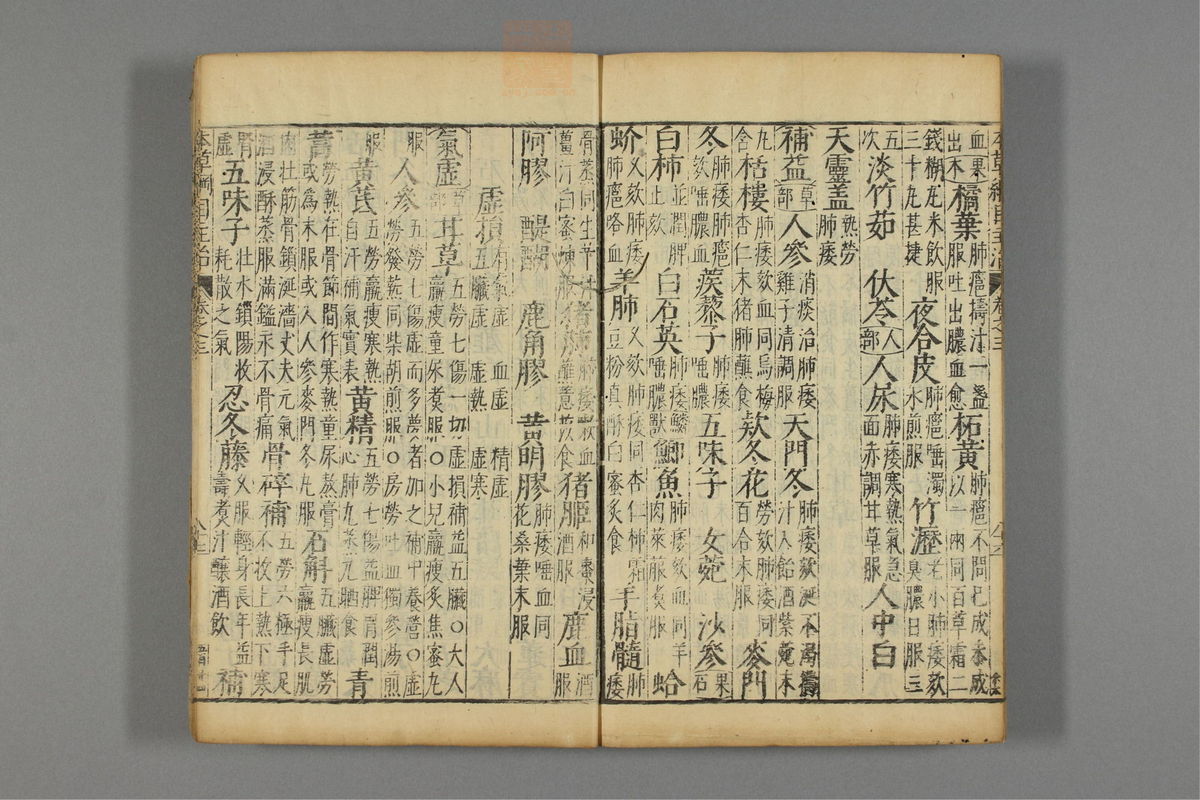 血出果木橘葉肺癰擣汁一盞服吐出膿血愈柘黃肺癰不問已成未成以一兩同百草霜二
錢糊丸米飲服三十丸甚捷夜合皮肺癰唾濁水煎服竹瀝老小肺痿欬臭膿日服三
五次淡竹茹伏苓人部人尿肺痿寒熱氣急面赤調甘草服人中白
天靈蓋熱勞肺痿
補益草部人參消痰治肺痿雞子清調服天門冬肺痿欬涎不渴擣汁入飴酒紫菀末
丸栝樓肺痿欬血同烏梅杏仁末猪肺蘸食欵冬花勞欬肺痿同百合末服麥門
冬肺痿肺癰欬唾膿血蒺藜子肺痿唾膿五味子女菀沙參果石
白柿並潤脾止欬白石英肺痿唾膿鱗獸鯽魚肺痿欬血同羊肉萊菔煮服蛤
蚧久欬肺痿肺癰咯血羊肺久欬肺痿同杏仁柿霜豆粉真酥白蜜炙食羊脂髓肺痿
骨蒸同生薑汁白蜜煉服猪酒服鹿血酒服
阿膠醍醐鹿角膠黃明膠肺痿唾血同花桑葉末服
虛損有氣虛血虛精虛五臟虛虛熱虛寒
氣虛草部甘草五勞七傷一切虛損補益五臟○大人羸瘦童尿煮服○小兒羸瘦炙焦蜜丸
服人參五勞七傷虛而多夢者加之補中養營○虛勞發熱同柴胡煎服○房勞吐血獨參湯煎
服黃芪五勞羸瘦寒熱自汗補氣實表黃精五勞七傷益脾胃潤心肺九蒸九晒食青
蒿勞熱在骨節間作寒熱童尿熬膏或為末服或入人參麥門冬丸服石斛五臟虛勞羸瘦長肌
肉壯筋骨鎖涎濇丈夫元氣酒浸酥蒸服滿鎰永不骨痛骨碎補五勞六極手足不收上熱下寒
腎虛五味子壯水鎖陽收耗散之氣忍冬藤久服輕身長年益壽煮汁釀酒飲補
本草綱目主治 卷之三